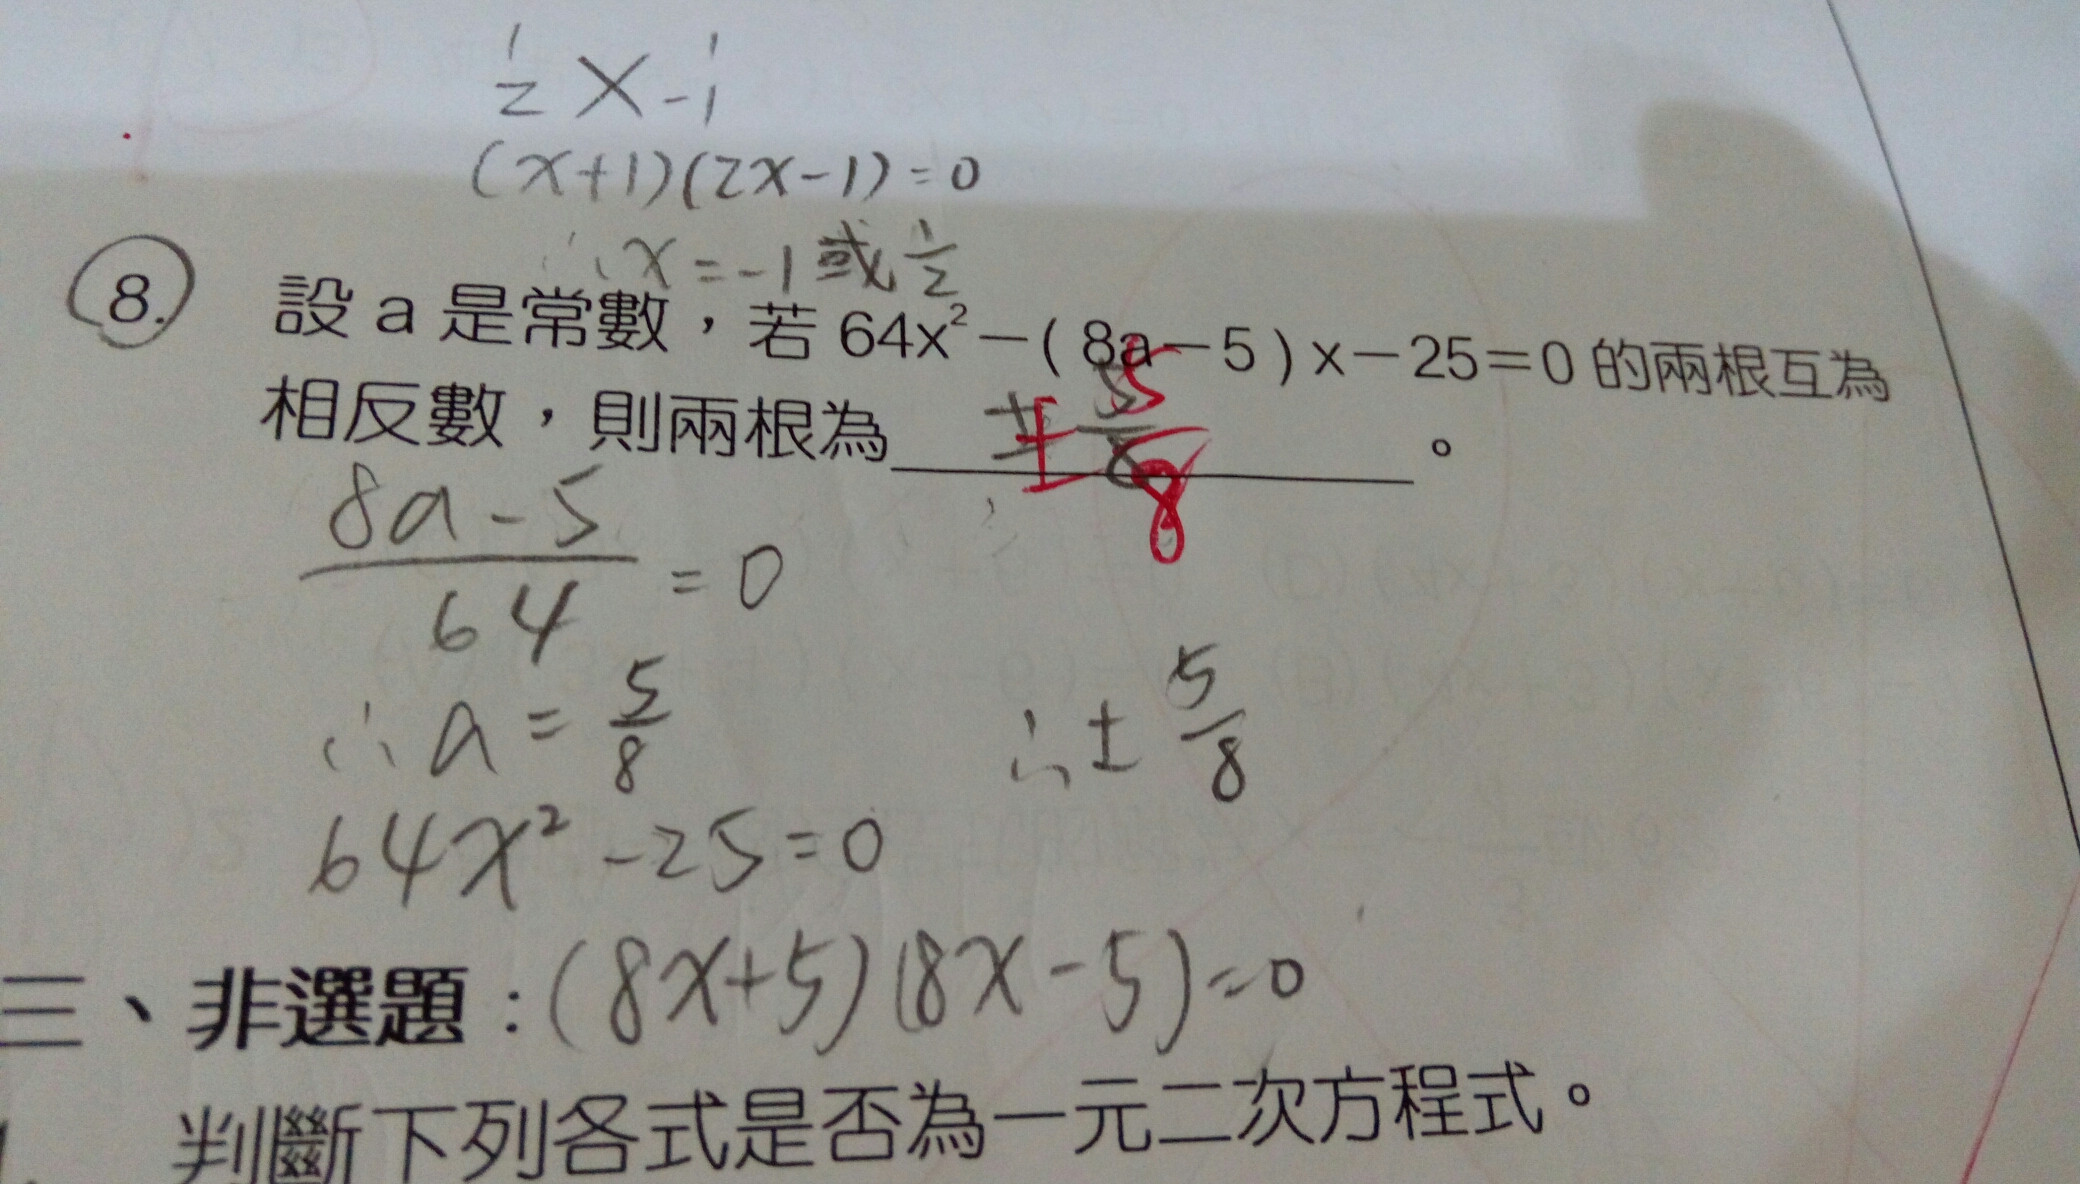 1 1
2 X -1
(x+1)(2x-1)=0
∴x=-1或1/2
8. 設a是常數,若64x²-(8a-5)x-25=0的兩根互為
相反數,則兩根為 ± 5/8 。
8a-5
64 =0
∴a=5/8 ∴±5/8
64x²-25=0
三、非選題:(8x+5)(8x-5)=0
判斷下列各式是否為一元二次方程式。